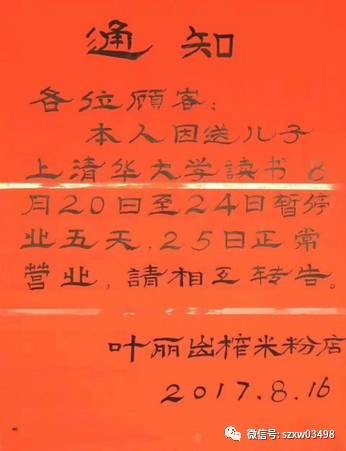 通知
各位顾客:
本人因送儿子
上清华大学读书8
月20日至24日暂停
业五天,25日正常
营业,請相互转告。
叶丽出榨米粉店
2017.8.16
微信号: szxw03498